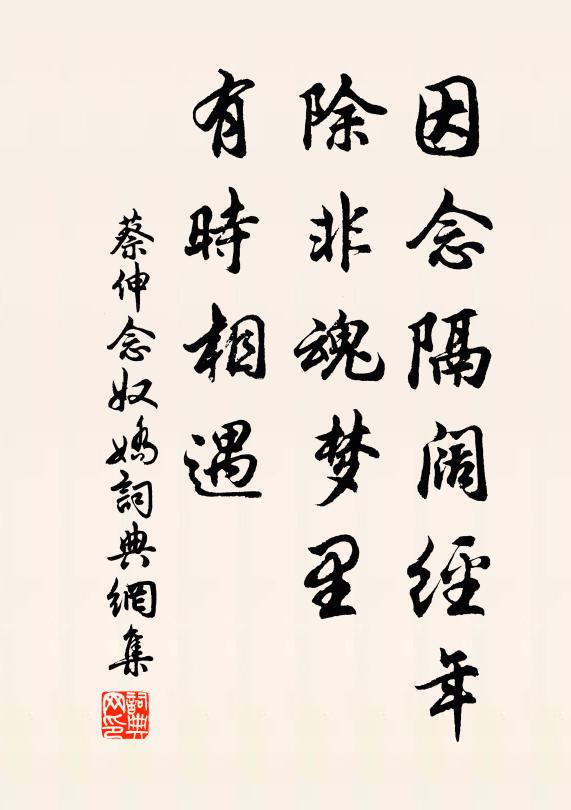 因念隔阔經年
除非魂梦里
有時相遇
蔡伸念奴嬌詞典網集
詞典
网印